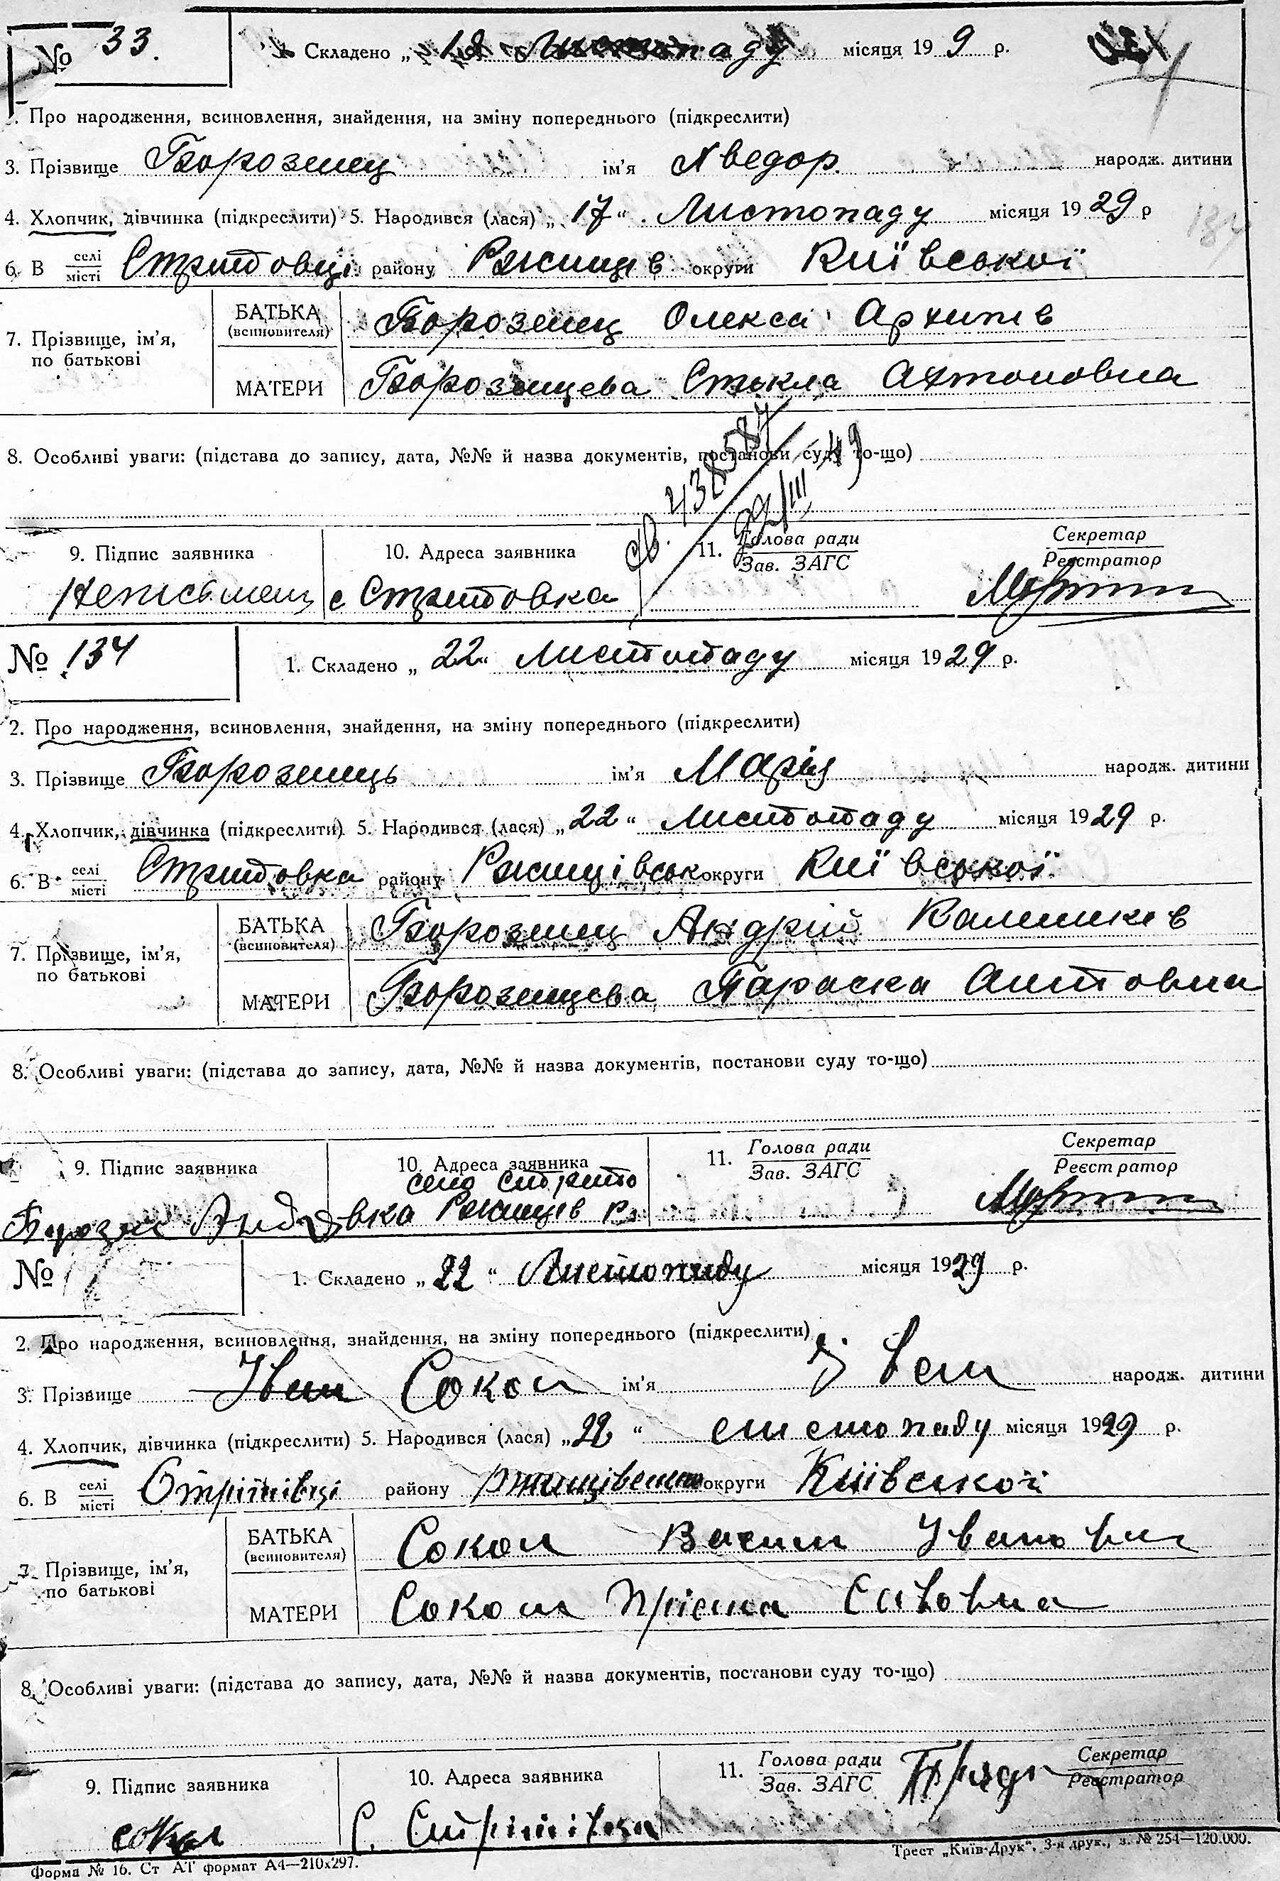 № 33. 1. Складено „ 18 Листопаду місяця 19 9 р.
2. Про народження, всиновлення, знайдення, на зміну попереднього (підкреслити)
3. Прізвище Борозенец ім'я Хведор. народж. дитини
4. Хлопчик, дівчинка (підкреслити) 5. Народився (лася) „ 17 “ Листопаду місяця 19 29 р
6. В селі/місті Стритовці району Ржищів округи Київської
7. Прізвище, ім'я, по батькові
БАТЬКА (всиновителя) Борозенец Олекса Архипів
МАТЕРИ Борозенцева Стекла Антоновна
8. Особливі уваги: (підстава до запису, дата, №№ й назва документів, постанови суду то-що)
св. 438587 / 29/III 49
9. Підпис заявника 10. Адреса заявника 11. Голова ради/Зав. ЗАГС Секретар/Реєстратор
Неписьменц с Стритовка
№ 134 1. Складено „ 22 “ Листопаду місяця 19 29 р.
2. Про народження, всиновлення, знайдення, на зміну попереднього (підкреслити)
3. Прізвище Борозенець ім'я Марія народж. дитини
4. Хлопчик, дівчинка (підкреслити) 5. Народився (лася) „ 22 “ Листопаду місяця 19 29 р.
6. В селі/місті Стритовка району Ржищівськ округи Київської
7. Прізвище, ім'я, по батькові
БАТЬКА (всиновителя) Борозенец Андрій Калеников
МАТЕРИ Борозенцева Параска Антовна
8. Особливі уваги: (підстава до запису, дата, №№ й назва документів, постанови суду то-що)
9. Підпис заявника 10. Адреса заявника 11. Голова ради/Зав. ЗАГС Секретар/Реєстратор
село Стрито
вка Ржищів р
№ 1. Складено „ 22 “ Листопаду місяця 19 29 р.
2. Про народження, всиновлення, знайдення, на зміну попереднього (підкреслити)
3. Прізвище Іван Сокол ім'я Іван народж. дитини
4. Хлопчик, дівчинка (підкреслити) 5. Народився (лася) „ 22 “ листопаду місяця 19 29 р.
6. В селі/місті Стрітівці району округи Київської
7. Прізвище, ім'я, по батькові
БАТЬКА (всиновителя) Сокол Василь Іванович
МАТЕРИ Сокол Прісна Савовна
8. Особливі уваги: (підстава до запису, дата, №№ й назва документів, постанови суду то-що)
9. Підпис заявника 10. Адреса заявника 11. Голова ради/Зав. ЗАГС Секретар/Реєстратор
сокол С. Стрітівка
Форма № 16. Ст АТ формат А4—210х297. Трест „Київ-Друк“, 3-я друк., з. № 254—120.000.